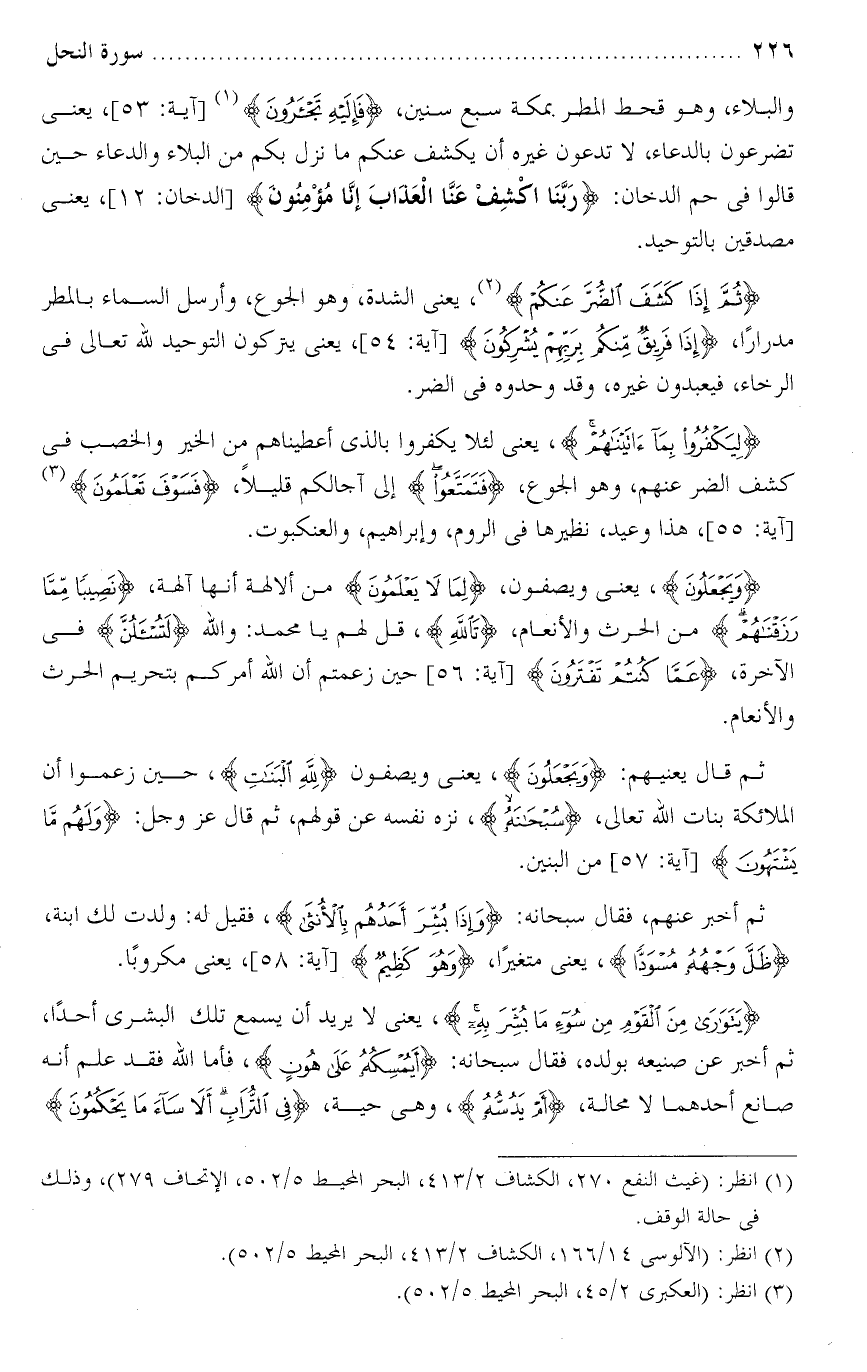 ٢٢٦ ........................................................................ سورة النحل
والبلاء، وهو قحط المطر بمكة سبع سنين، ﴿فَإِلَيْهِ تَجْـَٔرُونَ﴾(١) [آية: ٥٣]، يعنى
تضرعون بالدعاء، لا تدعون غيره أن يكشف عنكم ما نزل بكم من البلاء والدعاء حين
قالوا فى حم الدخان: ﴿رَبَّنَا اكْشِفْ عَنَّا الْعَذَابَ إِنَّا مُؤْمِنُونَ﴾ [الدخان: ١٢]، يعنى
مصدقين بالتوحيد.
﴿ثُمَّ إِذَا كَشَفَ ٱلضُّرَّ عَنكُمْ﴾(٢)، يعنى الشدة، وهو الجوع، وأرسل السماء بالمطر
مدرارًا، ﴿إِذَا فَرِيقٌ مِّنكُم بِرَبِّهِمْ يُشْرِكُونَ﴾ [آية: ٥٤]، يعنى يتركون التوحيد لله تعالى فى
الرخاء، فيعبدون غيره، وقد وحدوه فى الضر.
﴿لِيَكْفُرُوا۟ بِمَآ ءَاتَيْنَٰهُمْ ۚ﴾، يعنى لئلا يكفروا بالذى أعطيناهم من الخير والخصب فى
كشف الضر عنهم، وهو الجوع، ﴿فَتَمَتَّعُوا۟ ۖ﴾ إلى آجالكم قليلاً، ﴿فَسَوْفَ تَعْلَمُونَ﴾(٣)
[آية: ٥٥]، هذا وعيد، نظيرها فى الروم، وإبراهيم، والعنكبوت.
﴿وَيَجْعَلُونَ﴾، يعنى ويصفون، ﴿لِمَا لَا يَعْلَمُونَ﴾ من ألالهة أنها آلهة، ﴿نَصِيبًا مِّمَّا
رَزَقْنَٰهُمْ ۗ﴾ من الحرث والأنعام، ﴿تَٱللَّهِ﴾، قل لهم يا محمد: والله ﴿لَتُسْـَٔلُنَّ﴾ فى
الآخرة، ﴿عَمَّا كُنتُمْ تَفْتَرُونَ﴾ [آية: ٥٦] حين زعمتم أن الله أمركم بتحريم الحرث
والأنعام.
ثم قال يعنيهم: ﴿وَيَجْعَلُونَ﴾، يعنى ويصفون ﴿لِلَّهِ ٱلْبَنَٰتِ﴾، حين زعموا أن
الملائكة بنات الله تعالى، ﴿سُبْحَٰنَهُۥ ۙ﴾، نزه نفسه عن قولهم، ثم قال عز وجل: ﴿وَلَهُم مَّا
يَشْتَهُونَ﴾ [آية: ٥٧] من البنين.
ثم أخبر عنهم، فقال سبحانه: ﴿وَإِذَا بُشِّرَ أَحَدُهُم بِٱلْأُنثَىٰ﴾، فقيل له: ولدت لك ابنة،
﴿ظَلَّ وَجْهُهُۥ مُسْوَدًّا﴾، يعنى متغيرًا، ﴿وَهُوَ كَظِيمٌ﴾ [آية: ٥٨]، يعنى مكروبًا.
﴿يَتَوَٰرَىٰ مِنَ ٱلْقَوْمِ مِن سُوٓءِ مَا بُشِّرَ بِهِۦٓ ۚ﴾، يعنى لا يريد أن يسمع تلك البشرى أحدًا،
ثم أخبر عن صنيعه بولده، فقال سبحانه: ﴿أَيُمْسِكُهُۥ عَلَىٰ هُونٍ﴾، فأما الله فقد علم أنه
صانع أحدهما لا محالة، ﴿أَمْ يَدُسُّهُۥ﴾، وهى حية، ﴿فِى ٱلتُّرَابِ ۗ أَلَا سَآءَ مَا يَحْكُمُونَ﴾
(١) انظر: (غيث النفع ٢٧٠، الكشاف ٤١٣/٢، البحر المحيط ٥٠٢/٥، الإتحاف ٢٧٩)، وذلك
فى حالة الوقف.
(٢) انظر: (الآلوسى ١٦٦/١٤، الكشاف ٤١٣/٢، البحر المحيط ٥٠٢/٥).
(٣) انظر: (العكبرى ٤٥/٢، البحر المحيط ٥٠٢/٥).